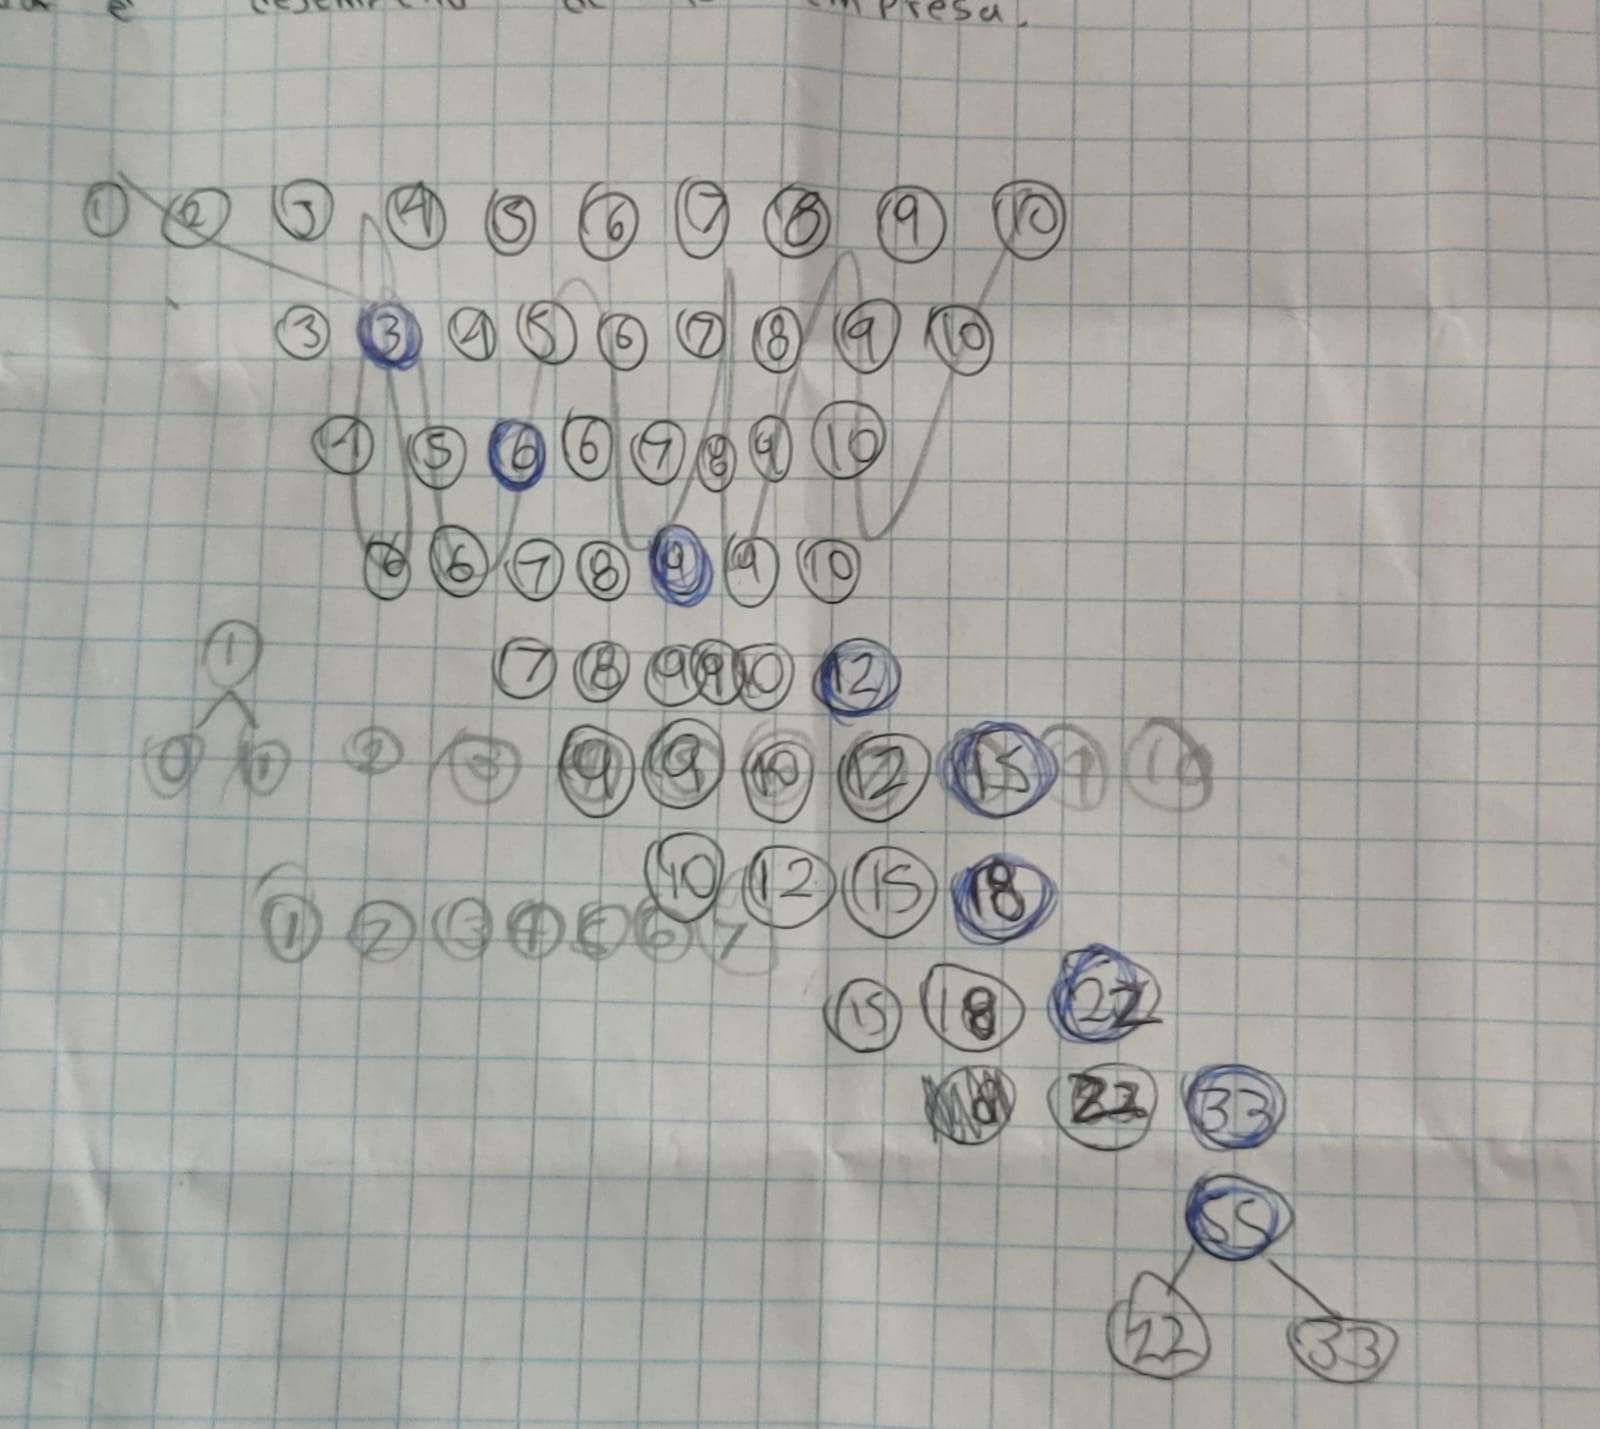 empresa.
1 2 3 4 5 6 7 8 9 10
3 3 4 5 6 7 8 9 10
4 5 6 6 7 8 9 10
6 6 7 8 9 9 10
7 8 9 9 10 12
1
2 3 9 9 10 12 15
10 12 15 18
1 2 3 4 5 6 7
15 18 22
33
55
22 33